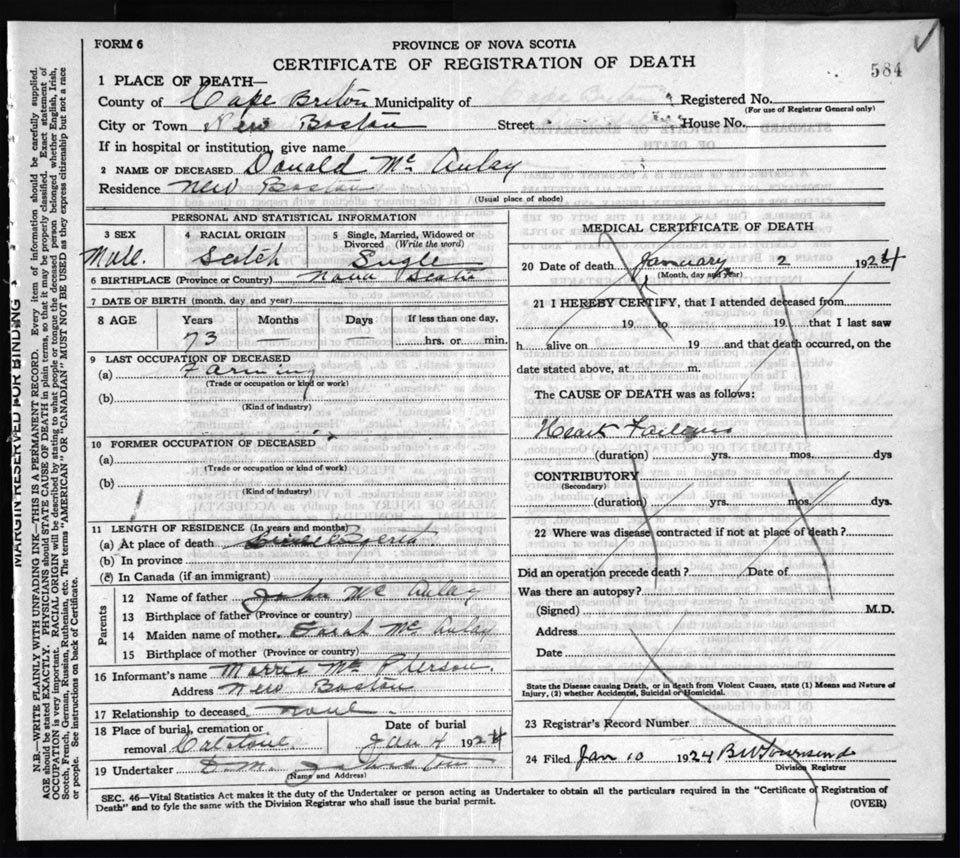 FORM 6
PROVINCE OF NOVA SCOTIA
584
CERTIFICATE OF REGISTRATION OF DEATH
1 PLACE OF DEATH—
County of Cape Briton Municipality of Registered No.
(For use of Registrar General only)
City or Town New Boston Street House No.
If in hospital or institution, give name
2 NAME OF DECEASED Donald Mc Aulay
Residence New Boston
(Usual place of abode)
PERSONAL AND STATISTICAL INFORMATION
3 SEX 4 RACIAL ORIGIN 5 Single, Married, Widowed or Divorced (Write the word)
Male. Scotch Single
6 BIRTHPLACE (Province or Country) Nova Scotia
7 DATE OF BIRTH (month, day and year)
8 AGE Years Months Days If less than one day,
73 hrs. or min.
9 LAST OCCUPATION OF DECEASED
(a) Farming
(Trade or occupation or kind or work)
(b)
(Kind of industry)
10 FORMER OCCUPATION OF DECEASED
(a)
(Trade or occupation or kind of work)
(b)
(Kind of industry)
11 LENGTH OF RESIDENCE (In years and months)
(a) At place of death
(b) In province
(c) In Canada (if an immigrant)
Parents
12 Name of father John Mc Aulay
13 Birthplace of father (Province or country)
14 Maiden name of mother Sarah Mc Aulay
15 Birthplace of mother (Province or country)
16 Informant's name Mc
Address New Boston
17 Relationship to deceased none
18 Place of burial, cremation or Date of burial
removal Jan 4 1924
19 Undertaker D. M.
(Name and Address)
MEDICAL CERTIFICATE OF DEATH
20 Date of death January 2 1924
(Month, day and year)
21 I HEREBY CERTIFY, that I attended deceased from
19 to 19 that I last saw
h alive on 19 and that death occurred, on the
date stated above, at m.
The CAUSE OF DEATH was as follows:
Heart
(duration) yrs. mos. dys
CONTRIBUTORY
(Secondary)
(duration) yrs. mos. dys.
22 Where was disease contracted if not at place of death?
Did an operation precede death? Date of
Was there an autopsy?
(Signed) M.D.
Address
Date
State the Disease causing Death, or in death from Violent Causes, state (1) Means and Nature of
Injury, (2) whether Accidental, Suicidal or Homicidal.
23 Registrar's Record Number
24 Filed Jan 10 1924 B W Townsend
Division Registrar
SEC. 46—Vital Statistics Act makes it the duty of the Undertaker or person acting as Undertaker to obtain all the particulars required in the "Certificate of Registration of
Death" and to fyle the same with the Division Registrar who shall issue the burial permit.
(OVER)
MARGIN RESERVED FOR BINDING
N.B.—WRITE PLAINLY WITH UNFADING INK—THIS IS A PERMANENT RECORD. Every item of information should be carefully supplied.
AGE should be stated EXACTLY. PHYSICIANS should STATE CAUSE OF DEATH in plain terms, so that it may be properly classified. Exact statement of
OCCUPATION is very important. RACIAL ORIGIN will be described by stating to what people or tongue the deceased person belonged whether English, Irish,
Scotch, French, German, Russian, Ruthenian, etc. The terms "AMERICAN" OR "CANADIAN" MUST NOT BE USED as they express citizenship but not a race
or people. See instructions on back of Certificate.